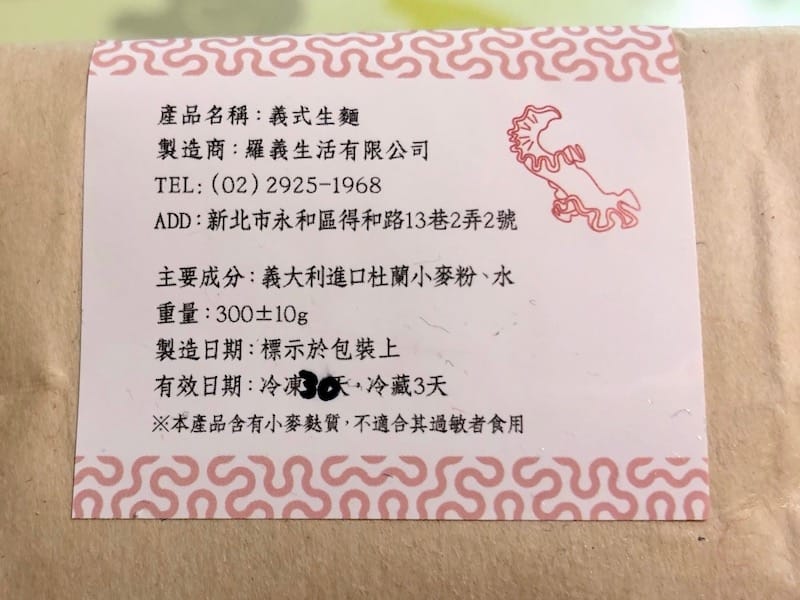 產品名稱：義式生麵
製造商：羅義生活有限公司
TEL：(02)2925-1968
ADD：新北市永和區得和路13巷2弄2號
主要成分：義大利進口杜蘭小麥粉、水
重量：300±10g
製造日期：標示於包裝上
有效日期：冷凍30天，冷藏3天
※本產品含有小麥麩質，不適合其過敏者食用